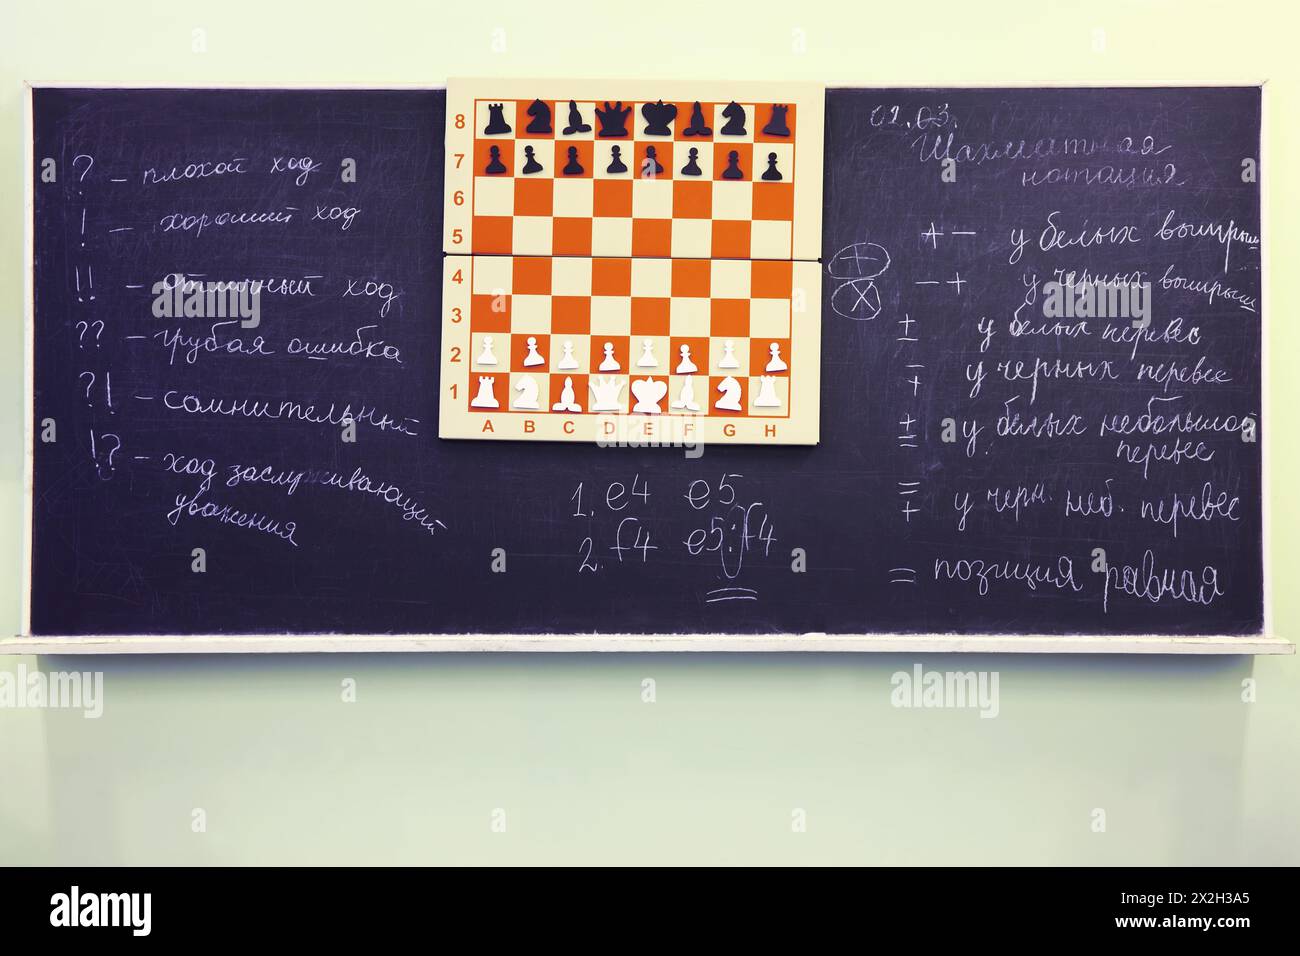 ? – плохой ход
! – хороший ход
!! – отличный ход
?? – грубая ошибка
?! – сомнительный
!? – ход заслуживающий
уважения
8
7
6
5
4
3
2
1
A B C D E F G H
1. e4 e5
2. f4 e5:f4
02.03.
Шахматная
нотация
+ − у белых выигрыш
− + у черных выигрыш
± у белых перевес
∓ у черных перевес
⩲ у белых небольшой
перевес
⩱ у черн. неб. перевес
= позиция равная
+
X
alamy
alamy
Image ID: 2X2H3A5
www.alamy.com